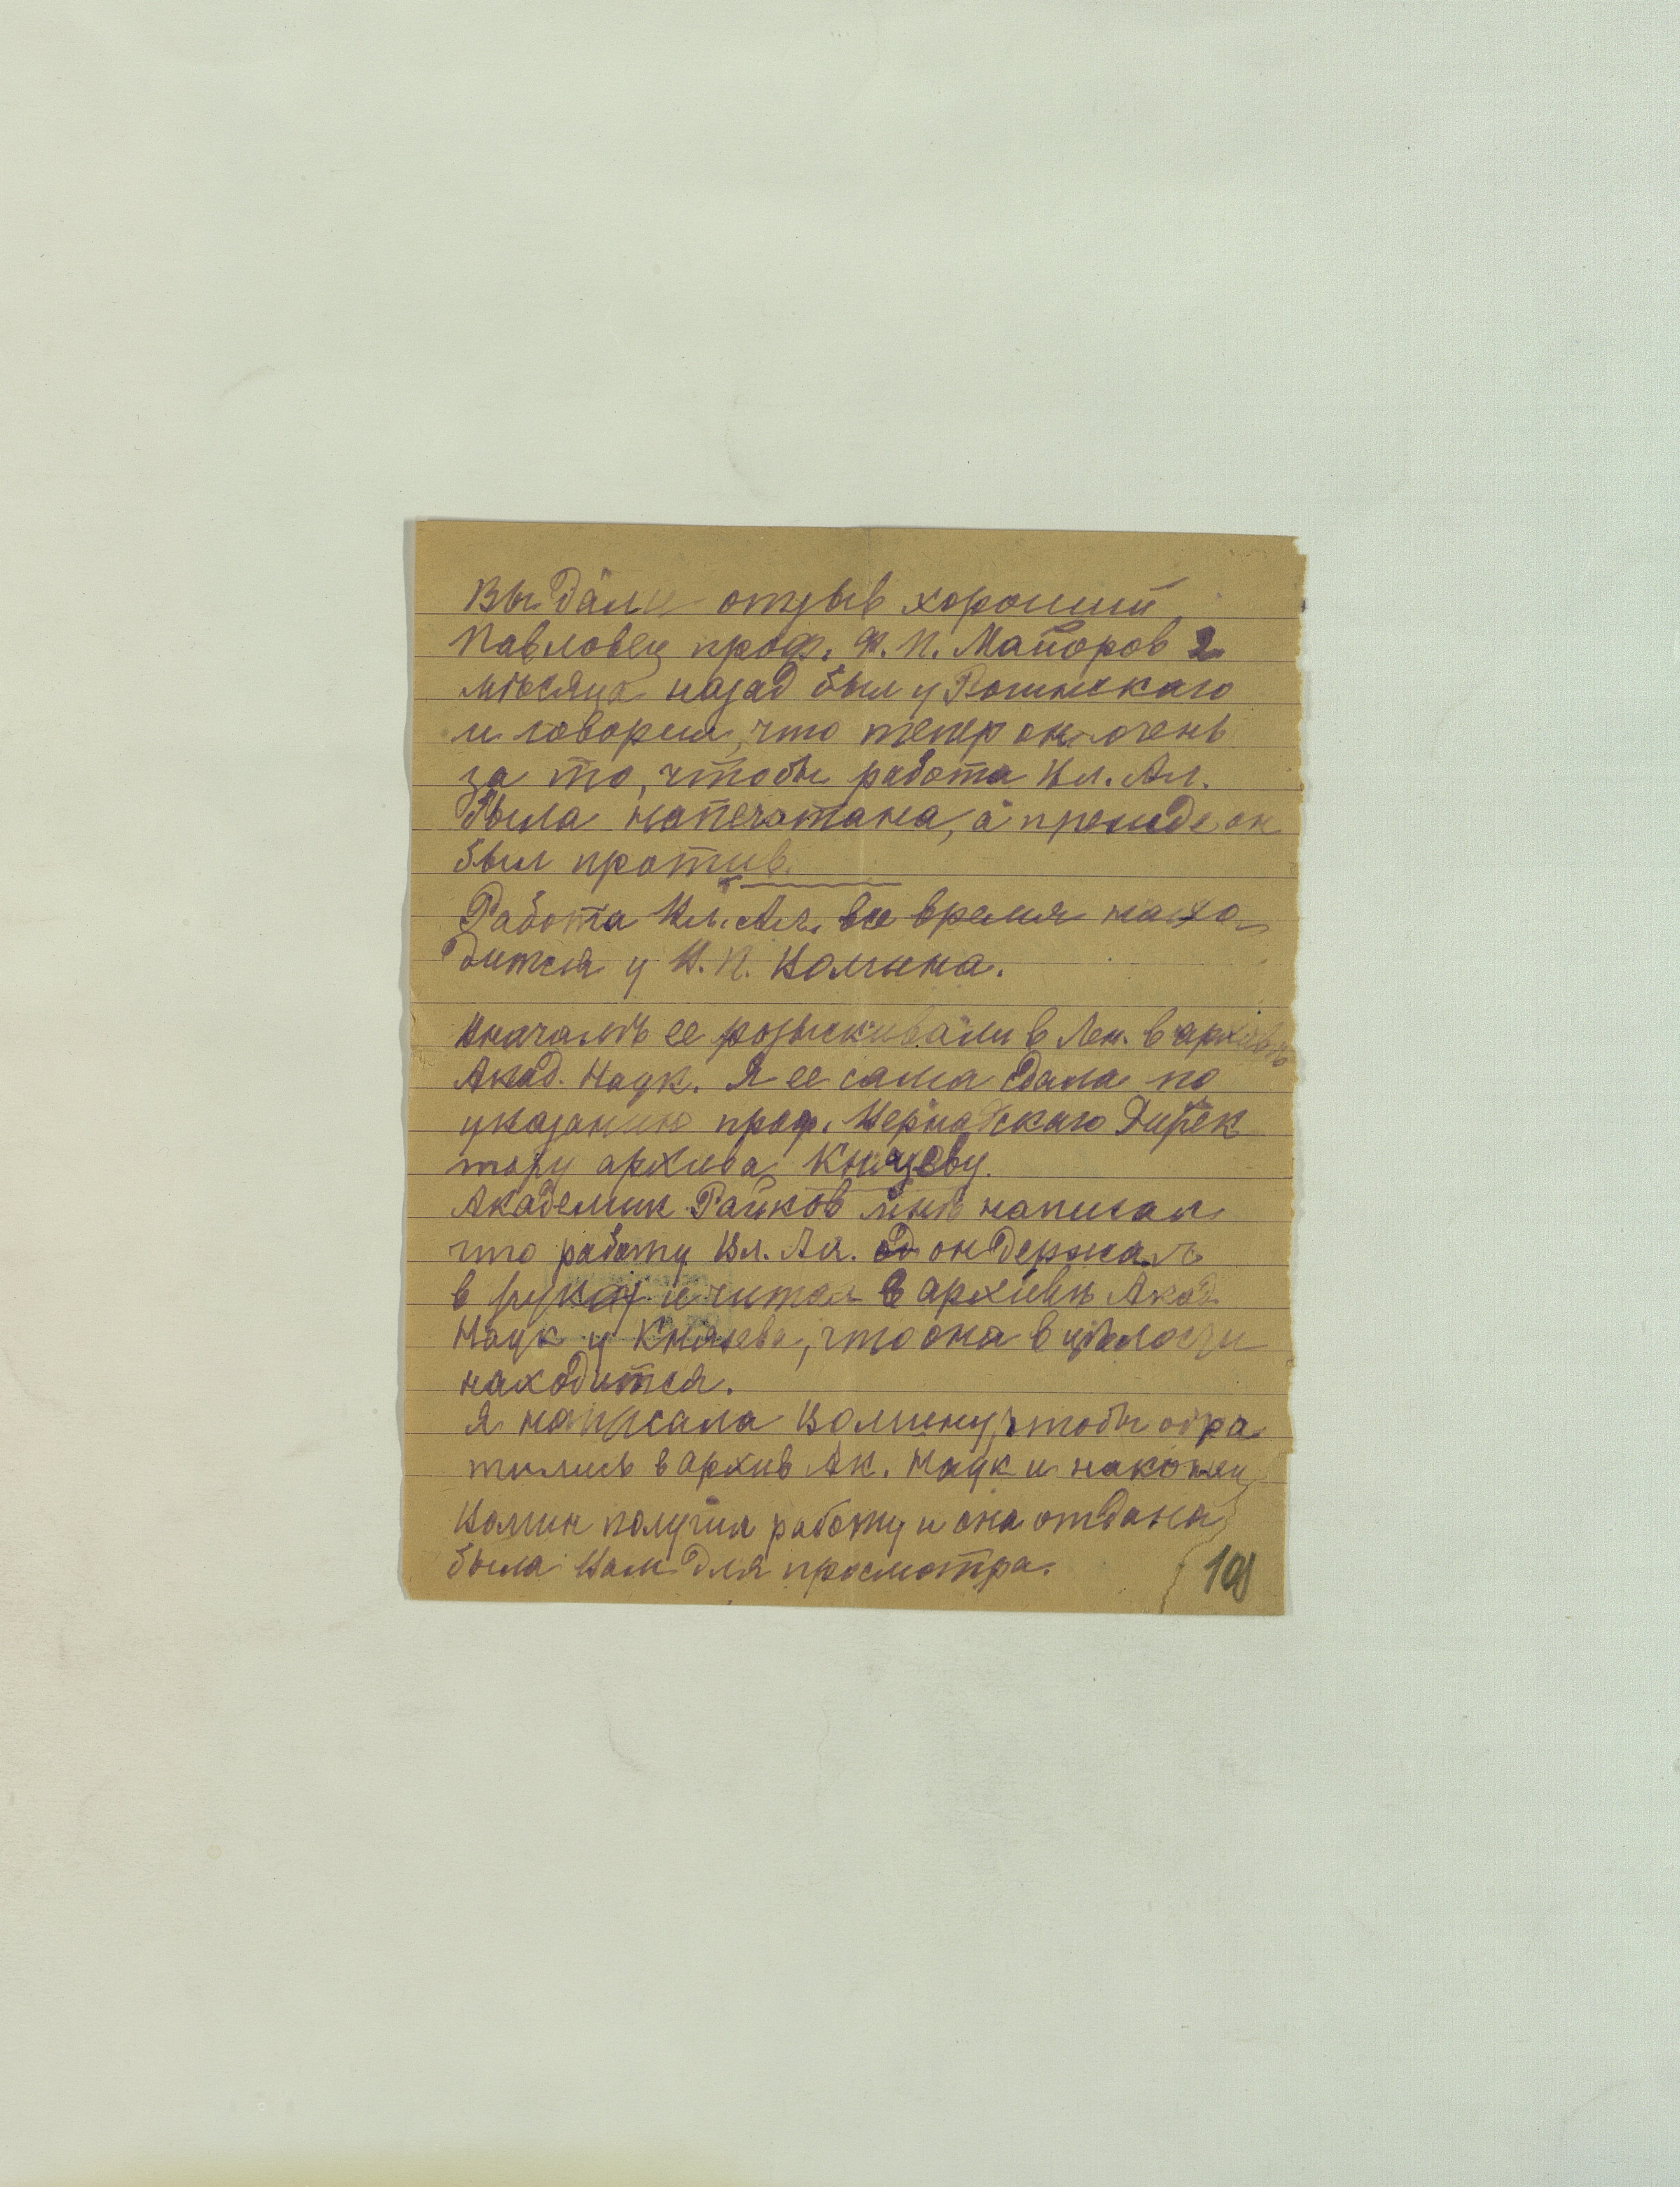 Вы дали отзыв хороший
Павловец проф. Ф. П. Майоров 2
мѣсяца назад был у Рогинскаго
и говорил, что тепер он очень
за то, чтобы работа Вл. Ал.
была напечатана, а прежде он
был против.
Работа Вл. Ал. все время нахо
дится у И. П. Волчина.
Вначалѣ ее розыскивали в Лен. в архивѣ
Акад. Наук. Я ее сама сдала по
указанию проф. Вернадскаго Дирек
тору архива Князеву.
Академик Райков мнѣ написал
что работу Вл. Ал. он держал
в руках и читал в архивѣ Акад
Наук у Князева, что она в цѣлости
находится.
Я написала Волчину, чтобы обра
тились в архив Ак. Наук и наконец
Волчин получил работу и она отдана
была Вам для просмотра.
101